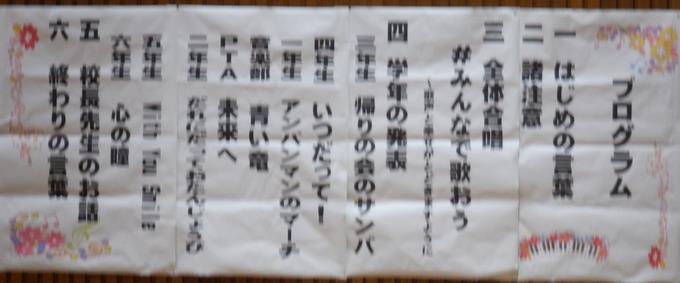 プログラム
一 はじめの言葉
二 諸注意
三 全体合唱
#みんなで歌おう
四 学年の発表
三年生 帰りの会のサンバ
四年生 いつだって!
一年生 アンパンマンのマーチ
音楽部 青い竜
PTA 未来へ
二年生
五年生 With You Smile
六年生 心の瞳
五 校長先生のお話
六 終わりの言葉